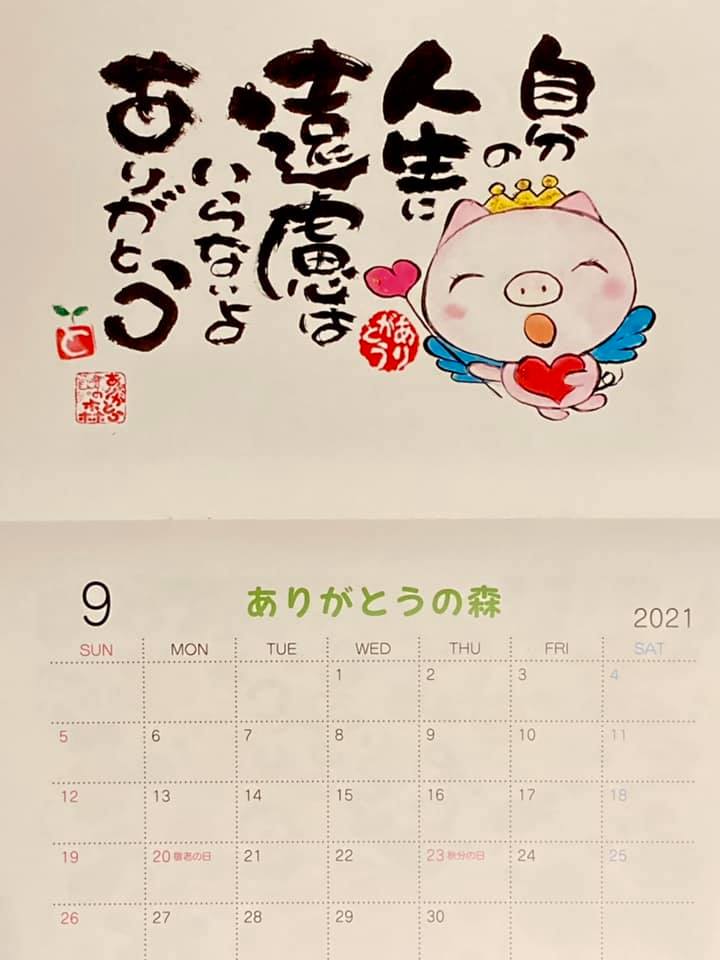 自分
の
人生に
遠慮は
いらないよ
ありがとう
ありがとう
と
ありがとうの森
9
ありがとうの森
2021
SUN MON TUE WED THU FRI SAT
1 2 3 4
5 6 7 8 9 10 11
12 13 14 15 16 17 18
19 20 敬老の日 21 22 23 秋分の日 24 25
26 27 28 29 30